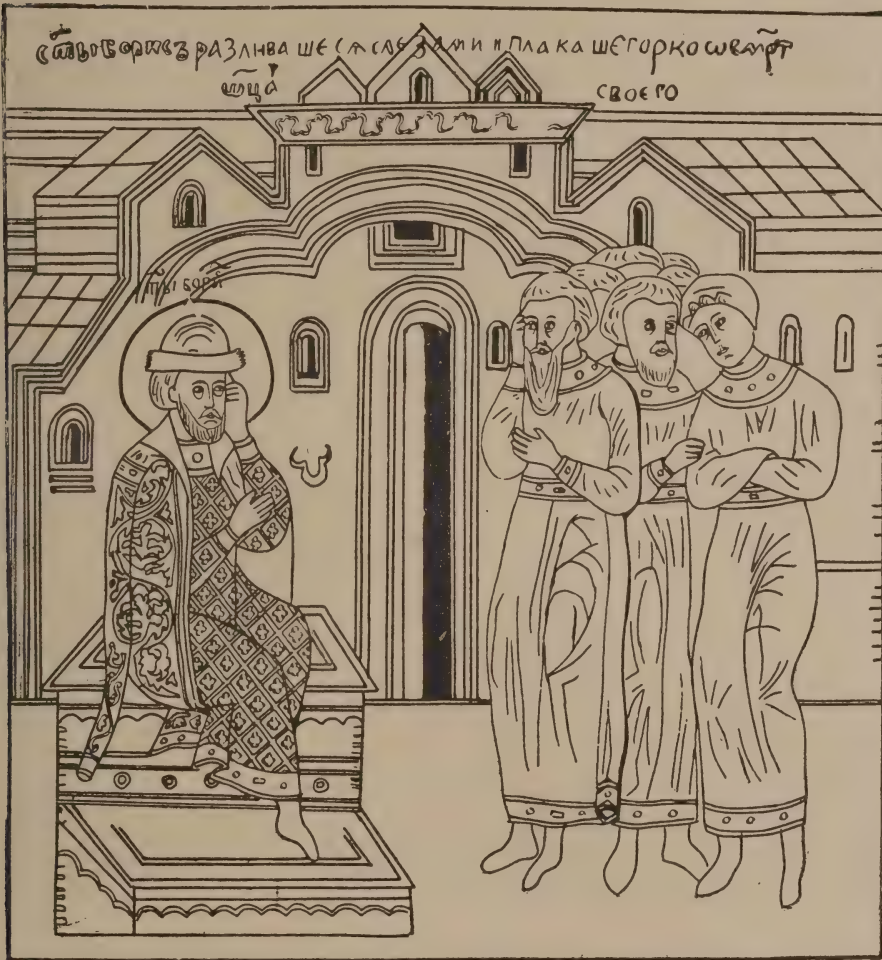 ст҃ы борисъ разливашесѧ слезами и плакаше горко ѡ
ѡц҃а своего
бори